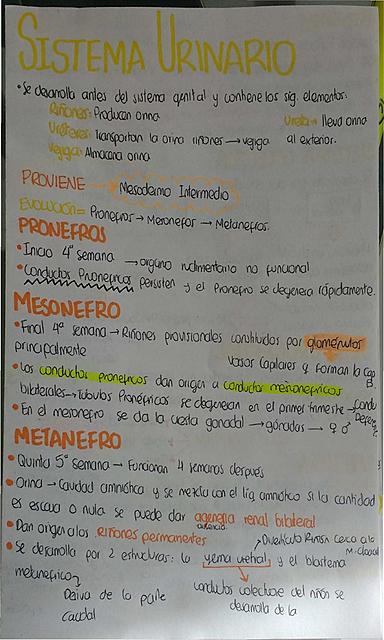 SISTEMA URINARIO
• Se desarrolla antes del sistema genital y contiene los sig. elementos:
Riñones: Producen orina
Uretra → lleva orina
Uréteres: Transportan la orina riñones → vejiga
al exterior.
Vejiga: Almacena orina
PROVIENE → Mesodermo Intermedio
EVOLUCIÓN = Pronefros → Mesonefros → Metanefros.
PRONEFROS
• Inicio 4ª semana → organo rudimentario no funcional
• Conductos Pronefricos persisten y el Pronefro se degenera rápidamente.
MESONEFRO
• Final 4ª semana → Riñones provisionales constituidos por glomérulos
principalmente
Vasos Capilares y forman la Cap
B.
• Los conductos pronefricos dan origen a conductos mesonefricos
bilaterales → Tubulos Pronéfricos se degeneran en el primer trimestre →
• En el mesonefro se da la cresta gonadal → gónadas → ♀ ♂
METANEFRO
• Quinta 5ª semana → Funcionan 4 semanas después
• Orina → Cavidad amniótica y se mezcla con el liq amniótico si la cantidad
es escasa o nula se puede dar agenesia renal bilateral
ausencia
• Dan origen a los riñones permanentes
→ Divertículo cerca a la
• Se desarrolla por 2 estructuras: la yema uretral y el blastema
M. cloacal
metanefrico
Deriva de la parte
caudal
conductos colectores del riñón se
desarrolla de la